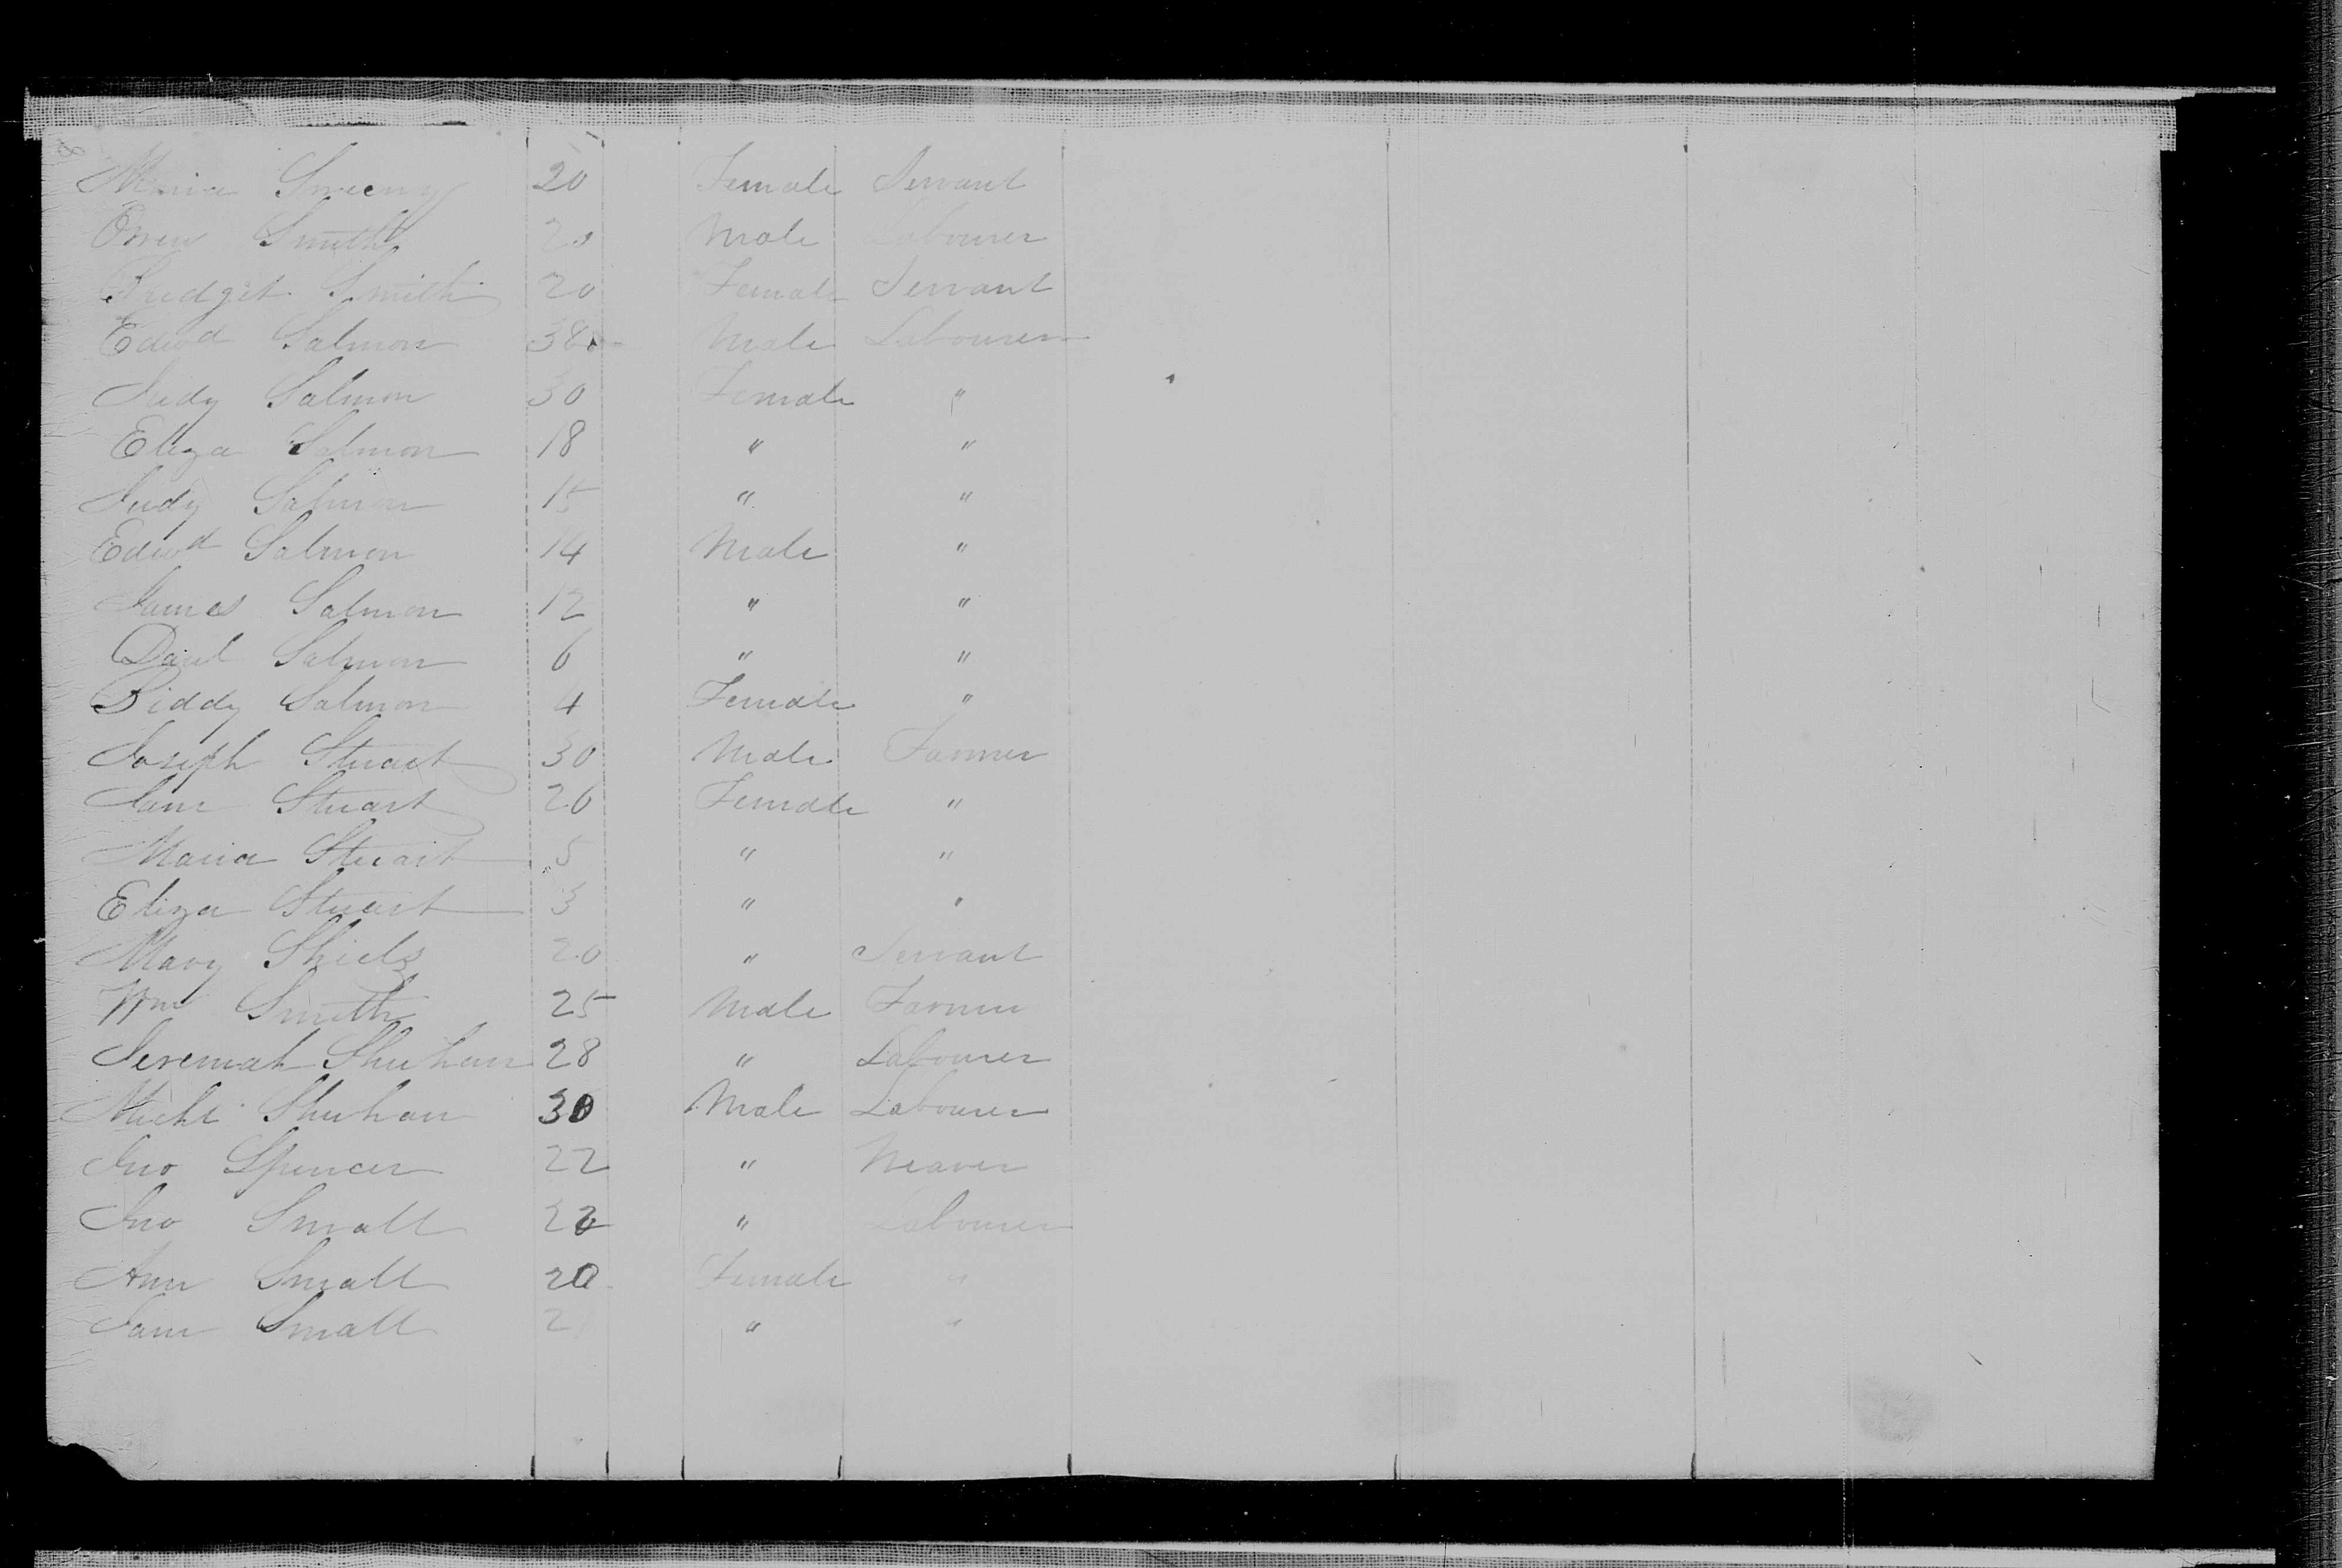 Maria Sweeny 20 Female Servant
Owen Smith 20 Male Labourer
Bridget Smith 20 Female Servant
Edwd Salmon 38 Male Labourer
Judy Salmon 30 Female "
Eliza Salmon 18 " "
Judy Salmon 15 " "
Edwd Salmon 14 Male "
James Salmon 12 " "
Danl Salmon 6 " "
Biddy Salmon 4 Female "
Joseph Stuart 30 Male Farmer
Jane Stuart 26 Female "
Maria Stuart 5 " "
Eliza Stuart 3 " "
Mary Shiels 20 " Servant
Wm Smith 25 Male Farmer
Jeremiah Shuhan 28 " Labourer
Michl Shuhan 30 Male Labourer
Jno Spencer 22 " Weaver
Jno Small " Labourer
Ann Small 20 Female "
Jane Small 2 " "